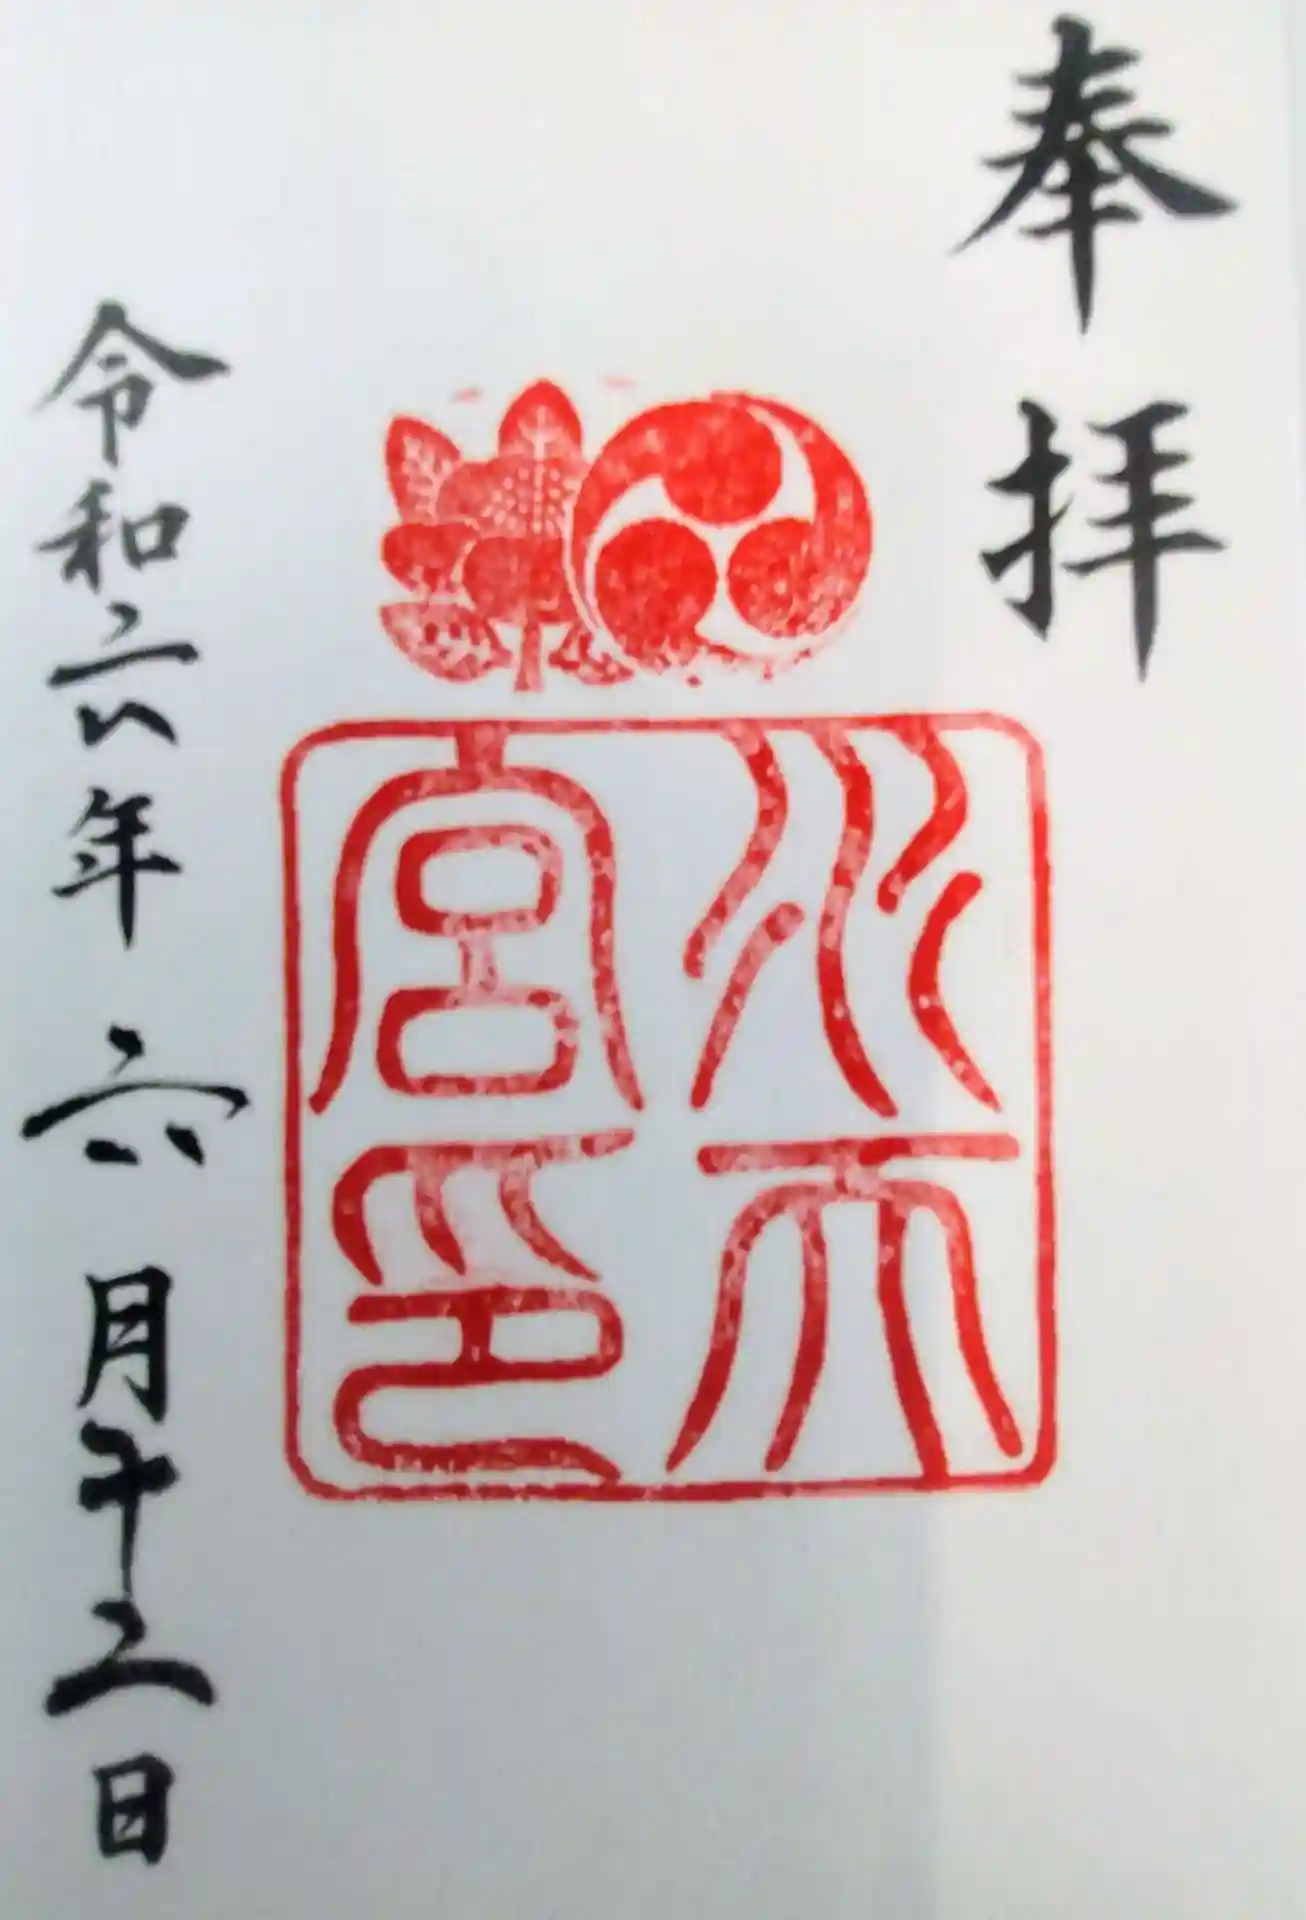 奉拝
水天
宮印
令和六年六月十二日